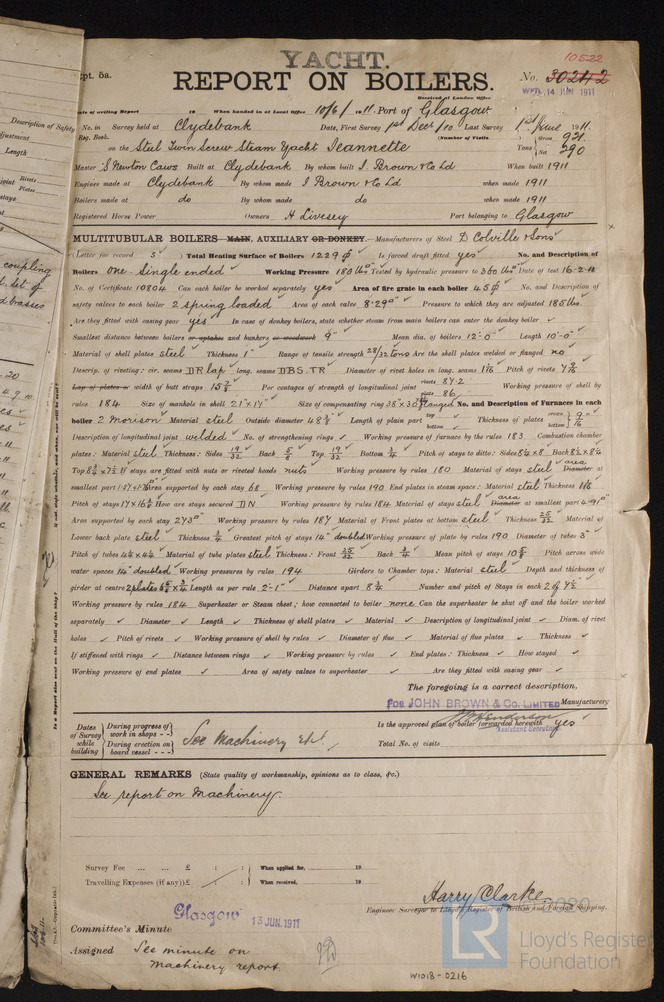 YACHT.
10522
Rpt. 5a.
REPORT ON BOILERS.
No. 30242
Received at London Office WED. 14 JUN 1911
Date of writing Report 19 When handed in at Local Office 10/6/1911. Port of Glasgow
No. in Survey held at Clydebank Date, First Survey 1st Decr/10 Last Survey 1st June 1911.
Reg. Book. (Number of Visits
on the Steel Twin Screw Steam Yacht Jeannette Tons Gross 921. Net 290
Master S Newton Caws Built at Clydebank By whom built J. Brown & Co Ld When built 1911
Engines made at Clydebank By whom made J Brown & Co Ld when made 1911
Boilers made at do By whom made do when made 1911
Registered Horse Power Owners H Livesey Port belonging to Glasgow
MULTITUBULAR BOILERS MAIN, AUXILIARY OR DONKEY. Manufacturers of Steel D. Colville & Sons
(Letter for record S ) Total Heating Surface of Boilers 1229 ϕ Is forced draft fitted yes No. and Description of
Boilers one - Single ended Working Pressure 180 lbs Tested by hydraulic pressure to 360 lbs Date of test 16.2.11
No. of Certificate 10804 Can each boiler be worked separately yes Area of fire grate in each boiler 45 ϕ No. and Description of
safety valves to each boiler 2 spring loaded Area of each valve 8.29□" Pressure to which they are adjusted 185 lbs
Are they fitted with easing gear yes In case of donkey boilers, state whether steam from main boilers can enter the donkey boiler ✓
Smallest distance between boilers or uptakes and bunkers or woodwork 9" Mean dia. of boilers 12'-0" Length 10'-0"
Material of shell plates steel Thickness 1" Range of tensile strength 28/32 tons Are the shell plates welded or flanged no
Descrip. of riveting: cir. seams DR lap long. seams DBS. TR Diameter of rivet holes in long. seams 1 1/16 Pitch of rivets 7 9/16
Lap of plates or width of butt straps 15 3/8 Per centages of strength of longitudinal joint rivets 87.2 plate 86 Working pressure of shell by
rules 184 Size of manhole in shell 21" x 17" Size of compensating ring 38" x 30" flanged No. and Description of Furnaces in each
boiler 2 Morison Material steel Outside diameter 48 3/8 Length of plain part top bottom Thickness of plates crown bottom 9/16
Description of longitudinal joint welded No. of strengthening rings ✓ Working pressure of furnace by the rules 183 Combustion chamber
plates: Material steel Thickness: Sides 19/32 Back 5/8 Top 19/32 Bottom 3/4 Pitch of stays to ditto: Sides 8 1/2 x 8 Back 8 1/2 x 8 1/4
Top 8 3/4 x 7 1/2 If stays are fitted with nuts or riveted heads nuts Working pressure by rules 180 Material of stays steel area Diameter at
smallest part Area supported by each stay 68 Working pressure by rules 190 End plates in steam space: Material steel Thickness 1 1/16
Pitch of stays 17 x 16 1/8 How are stays secured DN Working pressure by rules 184 Material of stays steel area Diameter at smallest part 4.91□"
Area supported by each stay 273□" Working pressure by rules 187 Material of Front plates at bottom steel Thickness 25/32 Material of
Lower back plate steel Thickness 3/4 Greatest pitch of stays 14" doubled Working pressure of plate by rules 190 Diameter of tubes 3"
Pitch of tubes 4 1/4 x 4 1/4 Material of tube plates steel Thickness: Front 25/32 Back 3/4 Mean pitch of stays 10 5/8 Pitch across wide
water spaces 14" doubled Working pressures by rules 194 Girders to Chamber tops: Material steel Depth and thickness of
girder at centre 2 plates 6 5/8 x 3/4 Length as per rule 2'-1" Distance apart 8 3/4 Number and pitch of Stays in each 2 @ 7 1/2
Working pressure by rules 184 Superheater or Steam chest; how connected to boiler none Can the superheater be shut off and the boiler worked
separately ✓ Diameter ✓ Length ✓ Thickness of shell plates ✓ Material ✓ Description of longitudinal joint ✓ Diam. of rivet
holes ✓ Pitch of rivets ✓ Working pressure of shell by rules ✓ Diameter of flue ✓ Material of flue plates ✓ Thickness ✓
If stiffened with rings ✓ Distance between rings ✓ Working pressure by rules ✓ End plates: Thickness ✓ How stayed ✓
Working pressure of end plates ✓ Area of safety valves to superheater ✓ Are they fitted with easing gear ✓
The foregoing is a correct description,
FOR JOHN BROWN & CO. LIMITED Manufacturer
Henderson
Assistant Secretary
Dates of Survey while building During progress of work in shops - - During erection on board vessel - - -
See Machinery Rpt.
Is the approved plan of boiler forwarded herewith yes
Total No. of visits
GENERAL REMARKS (State quality of workmanship, opinions as to class, &c.)
See report on Machinery.
Survey Fee ... ... £ : : When applied for, 19
Travelling Expenses (if any) £ : : When received, 19
Harry Clarke
Engineer Surveyor to Lloyd's Register of British and Foreign Shipping.
Glasgow 13 JUN. 1911
Committee's Minute
Assigned See minute on
Machinery report
W1018-0216
© 2020
LR Lloyd's Register
Foundation
Description of Safety
Length
coupling
set of
brasses